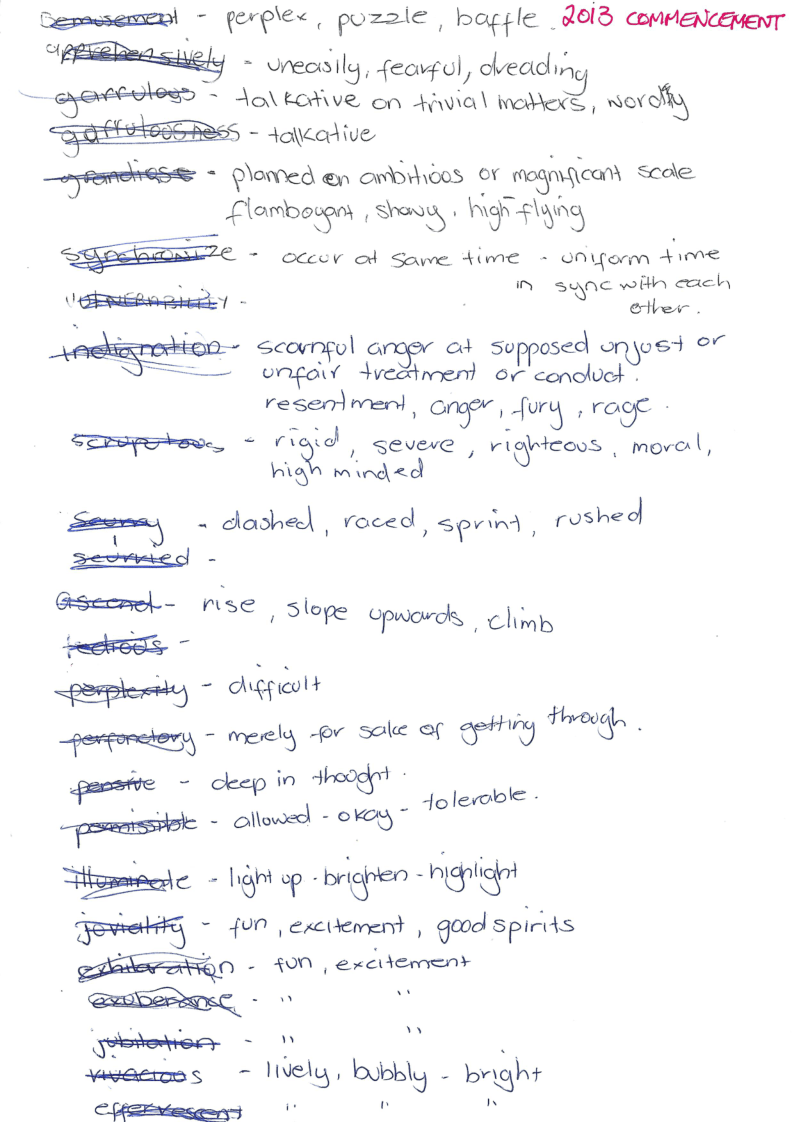 bemusement - perplex, puzzle, baffle. 2013 COMMENCEMENT
apprehensively - uneasily, fearful, dreading
garrulous - talkative on trivial matters, wordy
garrulousness - talkative
grandiose - planned on ambitious or magnificant scale
flamboyant, showy, high-flying
synchronize - occur at same time - uniform time
in sync with each
other.
VULNERABILITY -
indignation - scornful anger at supposed unjust or
unfair treatment or conduct.
resentment, anger, fury, rage.
scrupulous - rigid, severe, righteous, moral,
high minded
Scurry - dashed, raced, sprint, rushed
scurried -
ascend - rise, slope upwards, climb
tedious -
perplexity - difficult
perfunctory - merely for sake of getting through.
pensive - deep in thought.
permissible - allowed - okay - tolerable.
illuminate - light up - brighten - highlight
joviality - fun, excitement, good spirits
exhilaration - fun, excitement
exuberance - " "
jubilation - " "
vivacious - lively, bubbly - bright
effervescent " " "